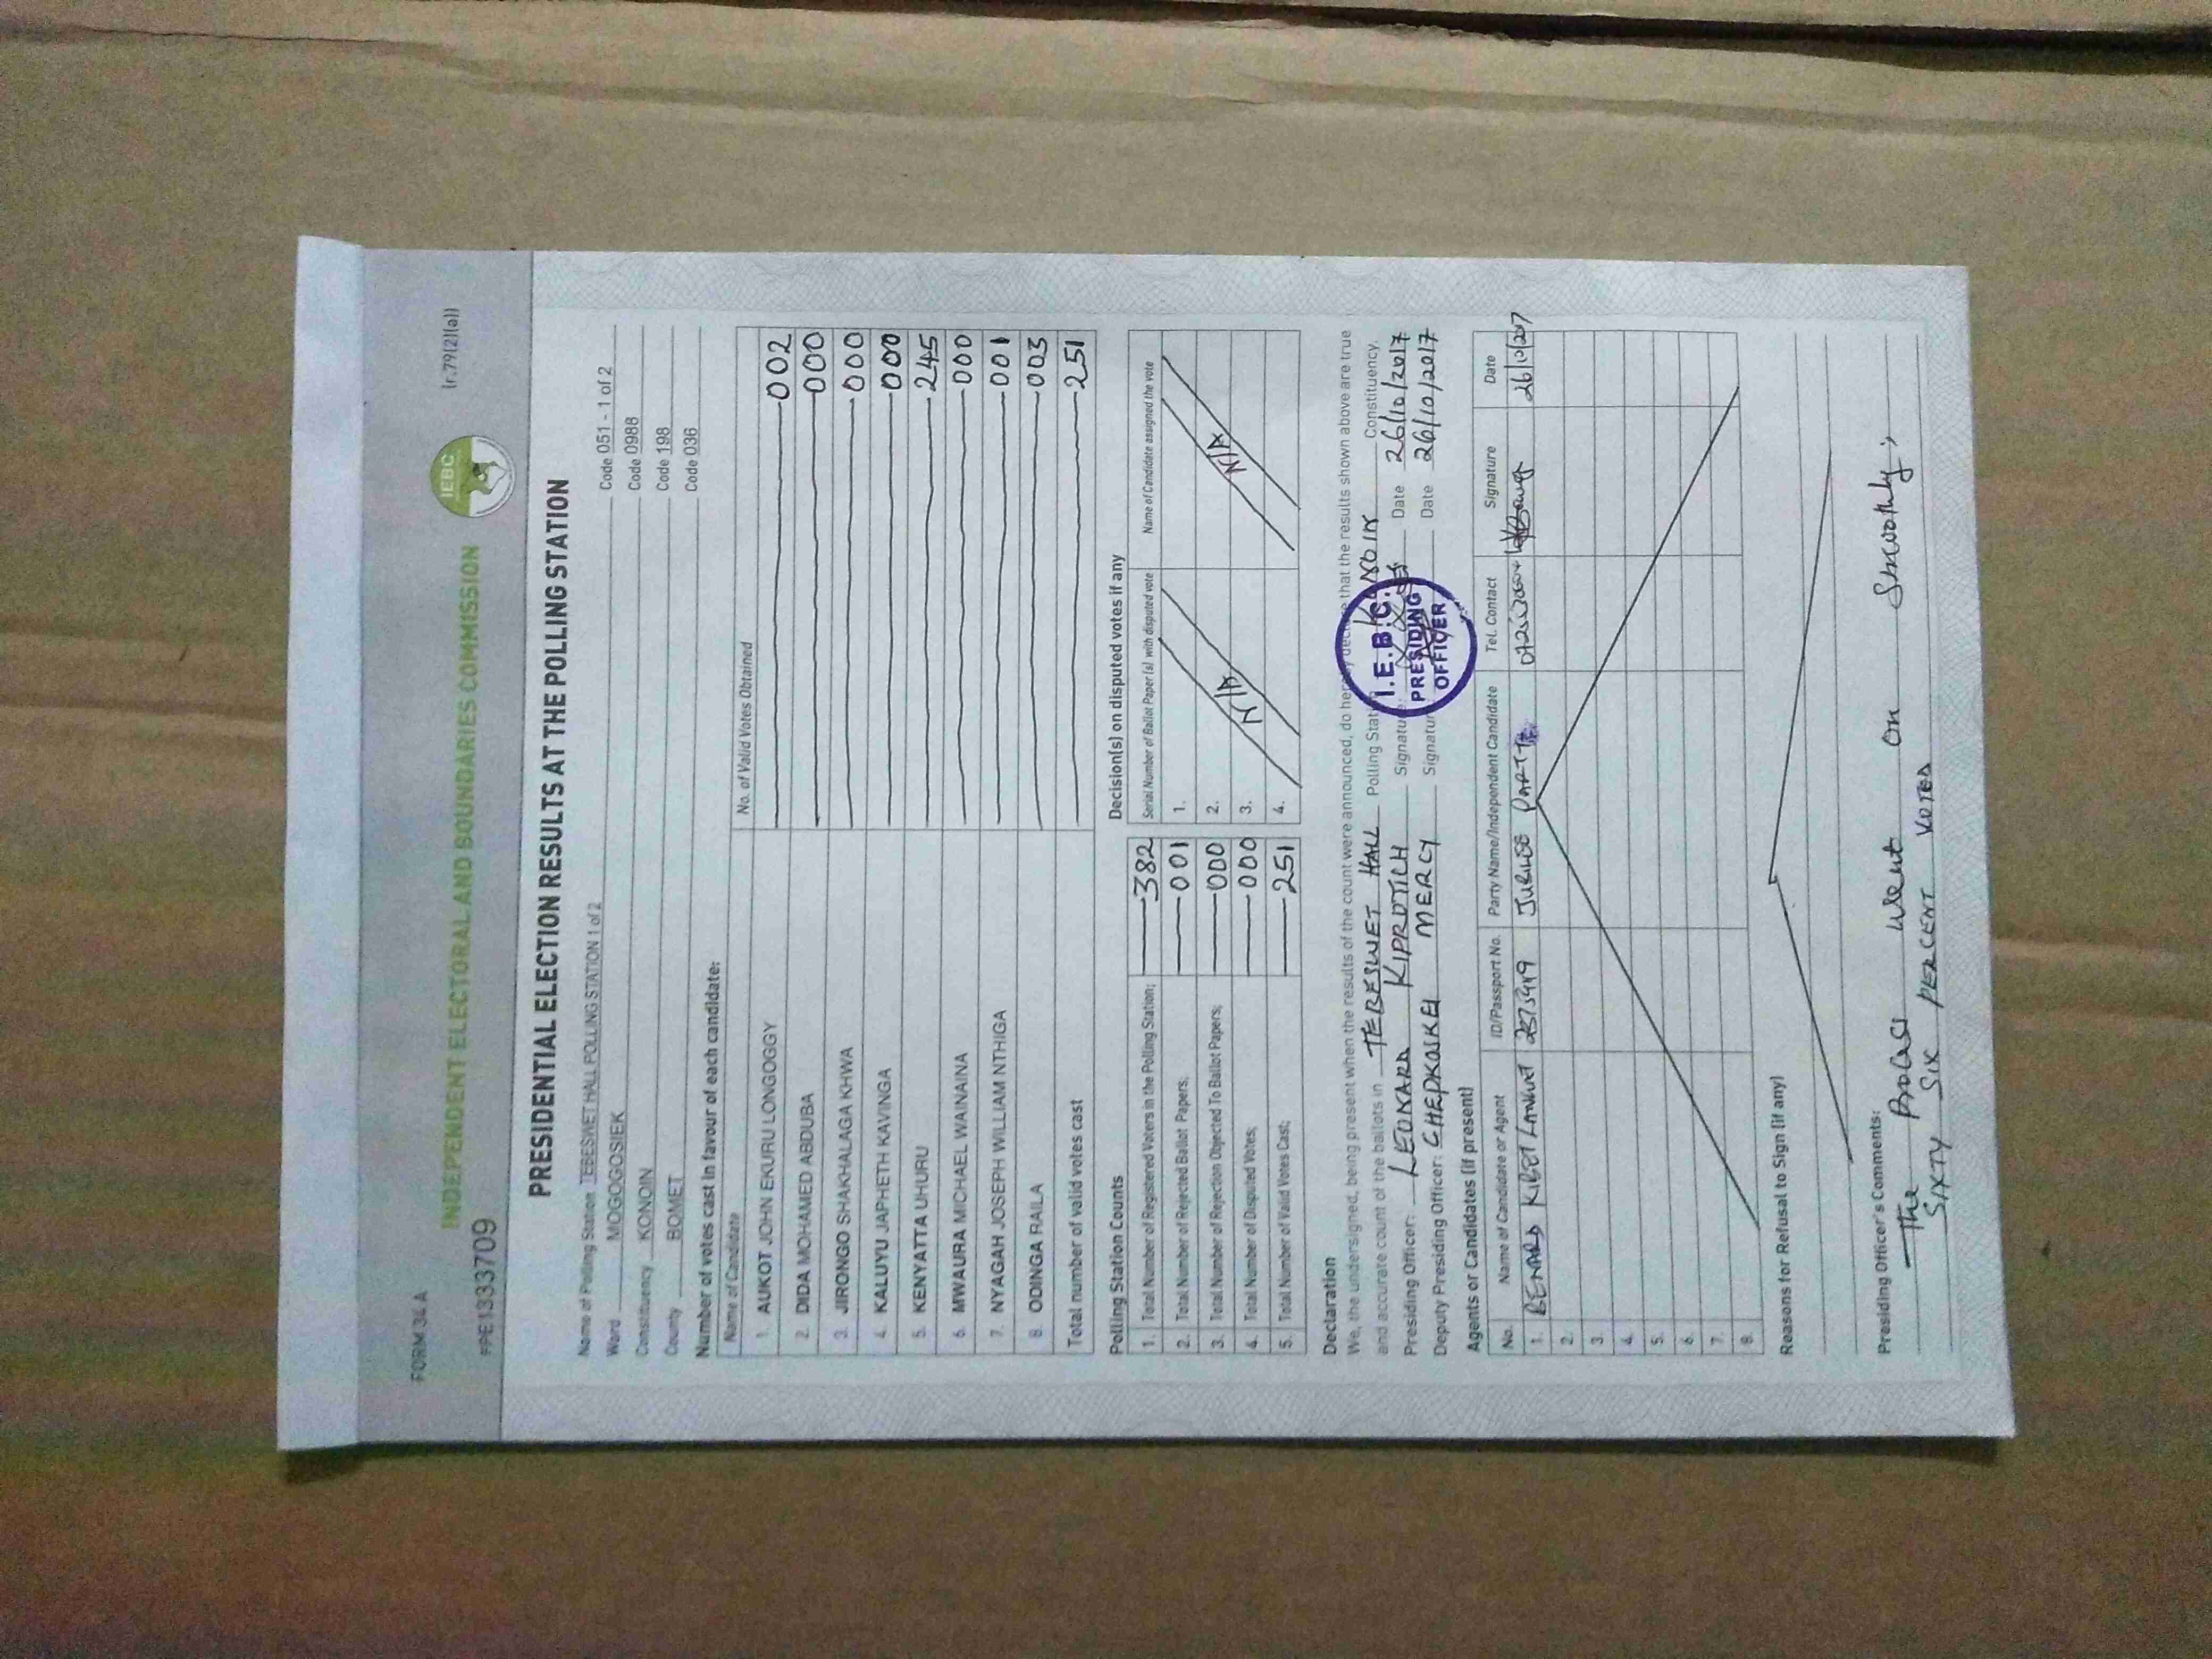 FORM 34 A (r.79(2)(a))
INDEPENDENT ELECTORAL AND BOUNDARIES COMMISSION
IEBC
PPE1333709
PRESIDENTIAL ELECTION RESULTS AT THE POLLING STATION
Name of Polling Station TEBESWET HALL POLLING STATION 1 of 2 Code 051 - 1 of 2
Ward MOGOGOSIEK Code 0988
Constituency KONOIN Code 198
County BOMET Code 036
Number of votes cast in favour of each candidate:
Name of Candidate No. of Valid Votes Obtained
1. AUKOT JOHN EKURU LONGOGGY 002
2. DIDA MOHAMED ABDUBA 000
3. JIRONGO SHAKHALAGA KHWA 000
4. KALUYU JAPHETH KAVINGA 000
5. KENYATTA UHURU 245
6. MWAURA MICHAEL WAINAINA 000
7. NYAGAH JOSEPH WILLIAM NTHIGA 001
8. ODINGA RAILA 003
Total number of valid votes cast 251
Polling Station Counts
1. Total Number of Registered Voters in the Polling Station; 382
2. Total Number of Rejected Ballot Papers; 001
3. Total Number of Rejection Objected To Ballot Papers; 000
4. Total Number of Disputed Votes; 000
5. Total Number of Valid Votes Cast; 251
Decision(s) on disputed votes if any
Serial Number of Ballot Paper(s) with disputed vote Name of Candidate assigned the vote
1.
2. N/A N/A
3.
4.
Declaration
We, the undersigned, being present when the results of the count were announced, do hereby declare that the results shown above are true
and accurate count of the ballots in TEBESWET HALL Polling Station KONOIN Constituency.
Presiding Officer: LEONARD KIPROTICH Signature: Date 26/10/2017
Deputy Presiding Officer: CHEPKOSKEI MERCY Signature Date 26/10/2017
I.E.B.C.
PRESIDING
OFFICER
Agents or Candidates (if present)
No. Name of Candidate or Agent ID/Passport No. Party Name/Independent Candidate Tel. Contact Signature Date
1. BENARD KIBET LANGAT JUBILEE PARTY 26/10/2017
2.
3.
4.
5.
6.
7.
8.
Reasons for Refusal to Sign (if any)
Presiding Officer's Comments:
The process went on smoothly;
SIXTY SIX PERCENT VOTED